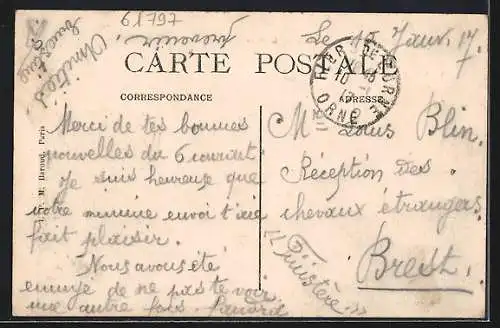 61797
prevenir.
Amitiés
Le 10 Janv. 17
CARTE POSTALE
CORRESPONDANCE
ADRESSE
ORNE
Merci de tes bonnes
nouvelles du 6 courant
Je suis heureuse que
votre minime envoi t'aie
fait plaisir.
Nous avons été
ennuyé de ne pas te voir
une autre fois.
M Louis Blin.
Réception des
chevaux étrangers
Brest.
"Finistère"
Paris